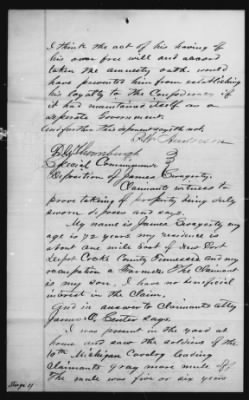 I think the act of his having of
his own free will and accord
taken the amnesty oath would
have prevented him from establishing
his loyalty to the Confederacy if
it had maintained itself as a
seperate Government.
And further this deponent sayeth not.
Special Commissioner
Deposition of James Gorgerty,
Claimants witness to
prove taking of property being duly
sworn deposes and says.
My name is James Gorgerty my
age is 72 years my residence is
about one mile East of New Port
Depot Cocke County Tennessee and my
occupation a Farmer. The Claimant
is my son. I have no beneficial
interest in the Claim.
And in answer to Claimants atty
James C. Center says.
I was present in the yard at
home and saw the soldiers of the
10th Michigan Cavalry leading
Claimants gray mare mule off
The mule was five or six years
Page 11